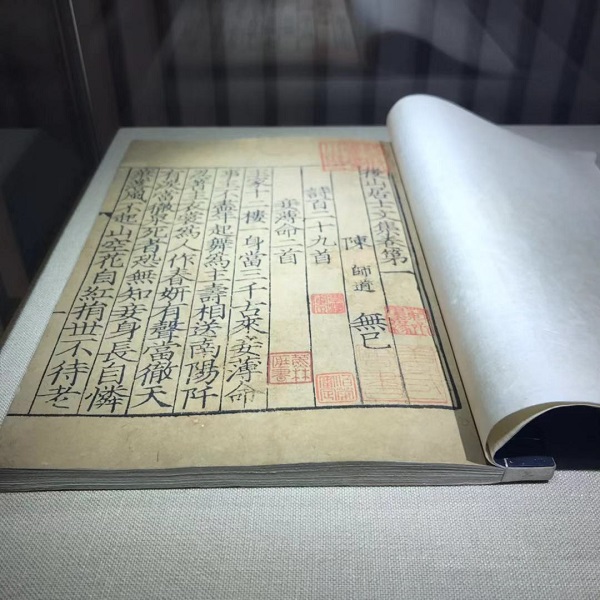 後山居士文集卷第一
陳師道無己
詩百二十九首
妾薄命二首
主家十二樓一身當三千古來妾薄命
事主不盡年起舞爲主壽相送南陽阡
忍著主衣裳爲人作春妍有聲當徹天
有淚當徹泉死者恐無知妾身長自憐
葉落風不起山空花自紅捐世不待老